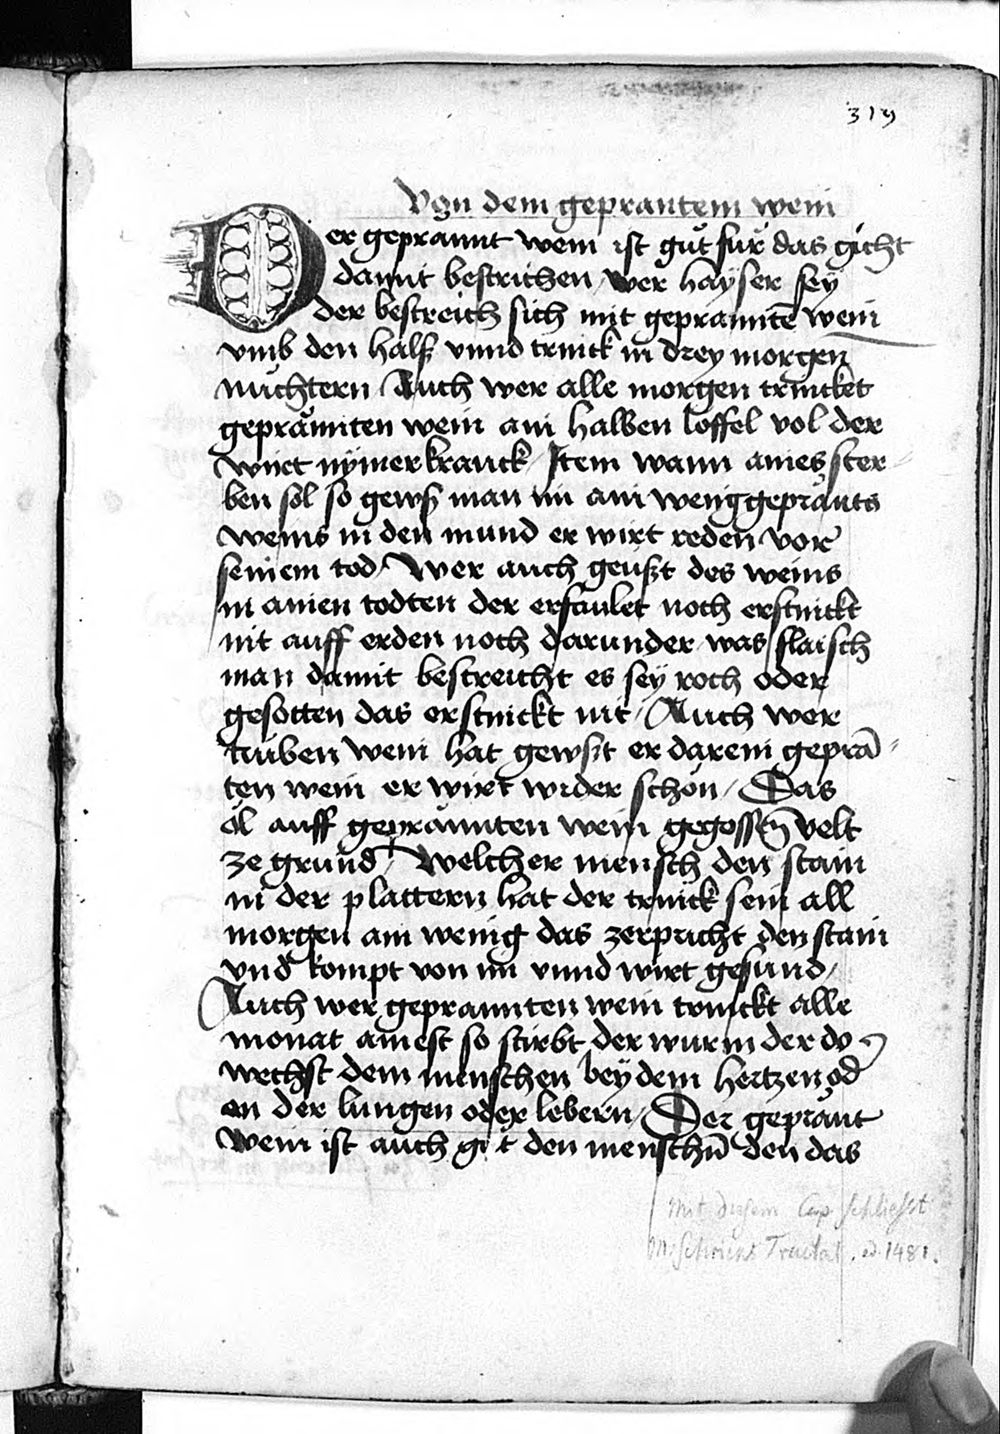 319
Von dem geprantem wein
Der geprannt wein ist gůt für das gicht
damit bestrichen / wer hayser sey
der bestreich sich mit geprannttē wein
vmb den halß vnnd trinck in drey morgen
nüchtern Auch wer alle morgen trincket
geprännten wein ain halben löffel vol der
wirt nÿmer kranck / Item wann aines ster
ben sol so gewß man im ain wenig gepränts
weins in den mund er wirt reden vor
seinem tod / Wer auch geußt des weins
in ainen todten der erfaulet noch erstinckt
nit auff erden noch darunder / was flaisch
man damit bestreicht es sey roch oder
gesotten das erstinckt nit / Auch wer
trüben wein hat gewßt er darein geprā
ten wein er wirt wider schön / Das
öl auff geprännten wein gegossen velt
ze grund / Welcher mensch den stain
in der plattern hat der trinck sein all
morgen ain wenig das zerpricht den stain
vnd kompt von im vnnd wirt gesund /
Auch wer geprannten wein trinckt alle
monat ainest so stirbt der wurm der do
wechst dem menschen beÿ dem hertzen od̄
an der lungen oder lebern / Der geprännt
wein ist auch gůt den menschn̄ den das
Mit diesem Cap schliesst
M. Schricks Tractat. ed. 1481.